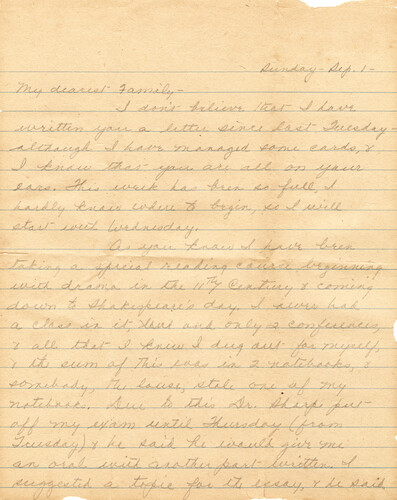 Sunday - Sep. 1 -
My dearest Family -
I don't believe that I have
written you a letter since last Tuesday -
although I have managed some cards, &
I know that you are all on your
ears. This week has been so full, I
hardly know where to begin, so I will
start with Wednesday.
As you know I have been
taking a special reading course beginning
with drama in the 11th Century & coming
down to Shakespeare's day. I never had
a class in it, and only 2 conferences,
& all that I know I dug out for myself,
& the sum of this was in 2 notebooks, &
somebody, the louse, stole one of my
notebooks. Due to this Dr. Sharp put
off my exam until Thursday (from
Tuesday) & he said he would give me
an oral with another part written. I
suggested a topic for the essay, & he said